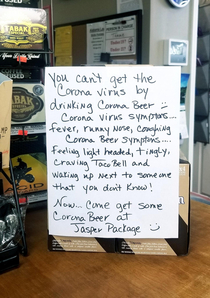 TABAK
TABAK
You can't get the
Corona virus by
drinking Corona Beer
Corona virus symptoms....
fever, runny Nose, Coughing
Corona Beer symptoms....
feeling light headed, tingly,
craving Taco Bell and
waking up next to someone
that you don't Know!
Now... Come get some
Corona Beer at
Jasper Package